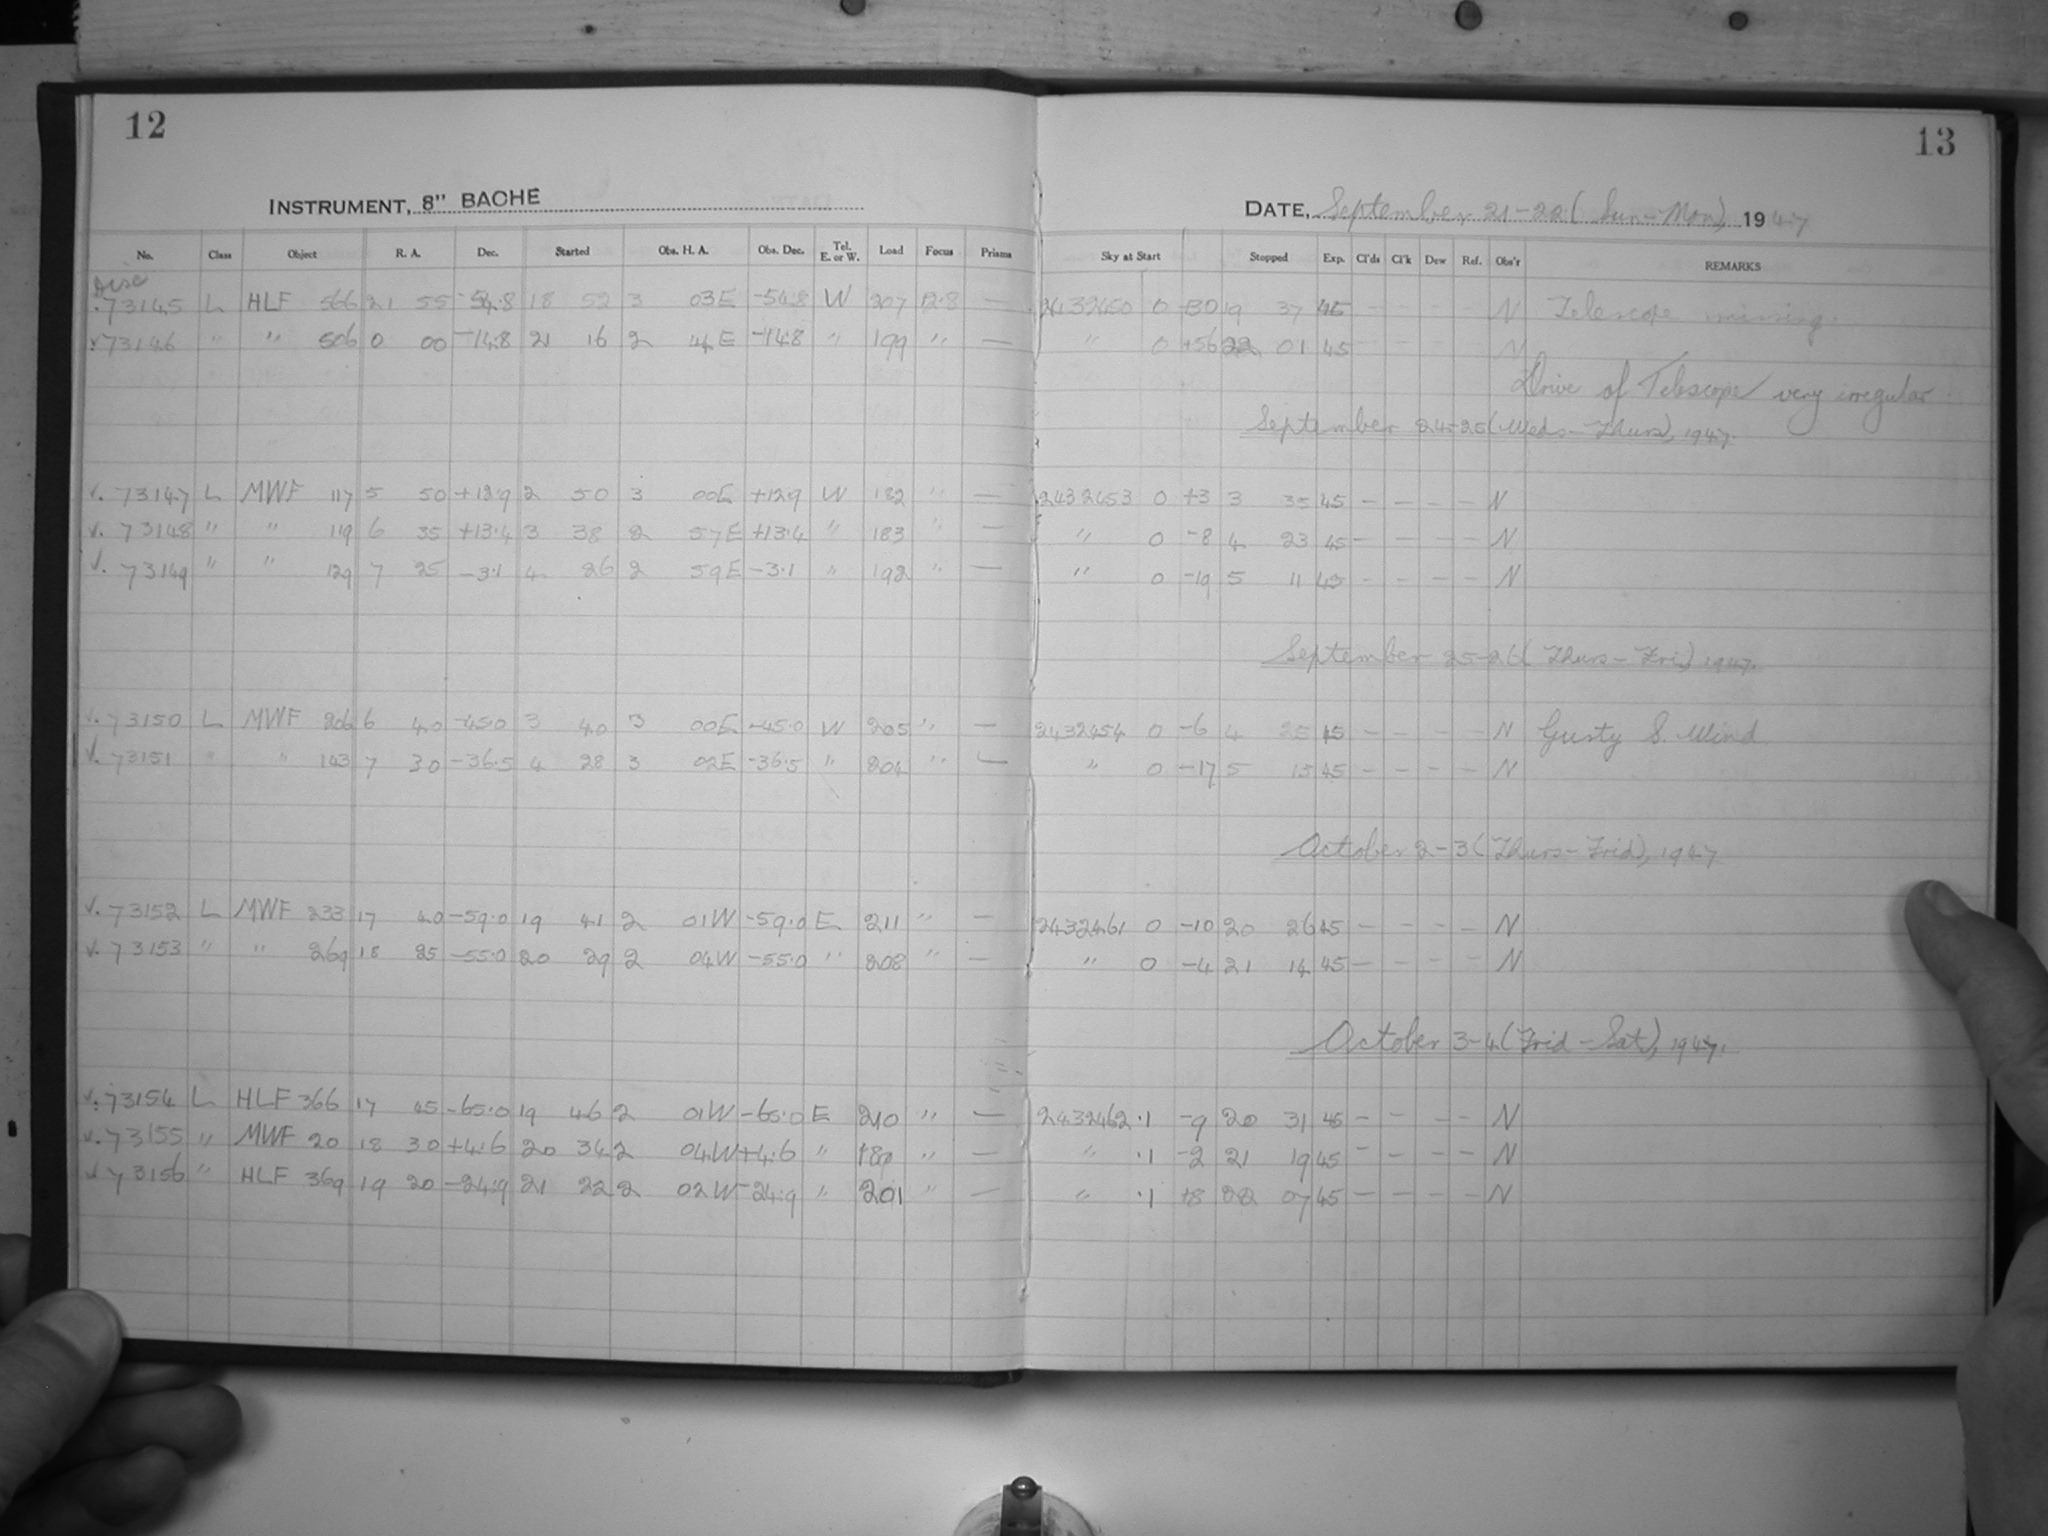 12
13
INSTRUMENT, 8" BACHE
DATE, September 21-22 (Sun-Mon), 1947
No. Class Object R. A. Dec. Started Obs. H. A. Obs. Dec. Tel. E. or W. Load Focus Prisms Sky at Start Stopped Exp. Cl'ds Cl'k Dew Ref. Obs'r REMARKS
Disc
73145 L HLF 566 21 55 -54.8 18 52 3 03E -54.8 W 207 12.8 — 2432450 0 -30 19 37 45 - - - - N Telescope missing.
v 73146 " " 506 0 00 -14.8 21 16 2 44E -14.8 " 199 " — " 0 +56 22 01 45 N
Drive of Telescope very irregular
September 24-25 (Weds-Thurs), 1947.
v. 73147 L MWF 117 5 50 +12.9 2 50 3 00E +12.9 W 182 " — 2432453 0 +3 3 35 45 - - - - N
v. 73148 " " 119 6 35 +13.4 3 38 2 57E +13.4 " 183 " — " 0 -8 4 23 45 - - - - N
v. 73149 " " 129 7 25 -3.1 4 26 2 59E -3.1 " 192 " — " 0 -19 5 11 45 - - - - N
September 25-26 (Thurs-Fri) 1947.
v. 73150 L MWF 206 6 40 -45.0 3 40 3 00E -45.0 W 205 " — 2432454 0 -6 4 25 45 - - - - N Gusty S. Wind
v. 73151 " " 143 7 30 -36.5 4 28 3 02E -36.5 " 204 " — " 0 -17 5 13 45 - - - - N
October 2-3 (Thurs-Frid), 1947
v. 73152 L MWF 233 17 40 -59.0 19 41 2 01W -59.0 E 211 " — 2432461 0 -10 20 26 45 - - - - N
v. 73153 " " 269 18 25 -55.0 20 29 2 04W -55.0 " 208 " — " 0 -4 21 14 45 - - - - N
October 3-4 (Frid-Sat), 1947.
v. 73154 L HLF 366 17 45 -65.0 19 46 2 01W -65.0 E 210 " — 2432462 .1 -9 20 31 45 - - - - N
v. 73155 " MWF 20 18 30 +4.6 20 34 2 04W +4.6 " " — " .1 -2 21 19 45 - - - - N
v 73156 " HLF 369 19 20 -24.9 21 22 2 02W -24.9 " 201 " — " .1 +8 22 07 45 - - - - N